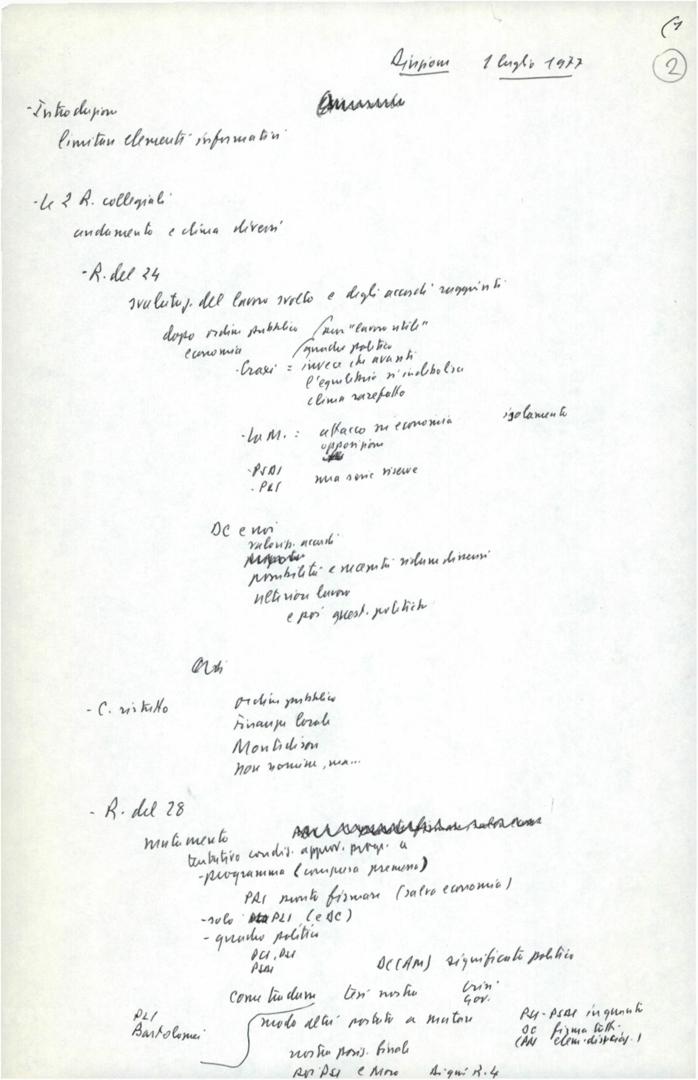 (1
2
Direzione 1 luglio 1977
- Introduzione
limitarsi elementi informativi
- Le 2 R. collegiali
andamento e clima diversi
- R. del 24
valutaz. del lavoro svolto e degli accordi raggiunti
dopo ordine pubblico "lavoro utile"
economia quadro politico
- Craxi = invece che avanti
l'equilibrio si indebolisce
clima rarefatto
- La M. : attacco su economia isolamento
opposizione
- PSDI
- PLI una serie riserve
DC e noi
valoriz. accordi
possibilità e necessità ridurre dissensi
ulteriore lavoro
e poi quest. politiche
- C. ristretto ordine pubblico
Finanza locale
Montedison
non nomine, ma...
- R. del 28
mutamento
tentativo condiz. approv. progr. a
- programma (compresa premessa)
PRI pronto firmare (salvo economia)
- solo PLI (e DC)
- quadro politico
PSDI
DC (AM) significato politico
come tradurre tesi nostra crisi
Gov.
PLI
Bartolomei modo altri portato a mutare
DC firma tutti
nostra posiz. finale
PSI e Moro